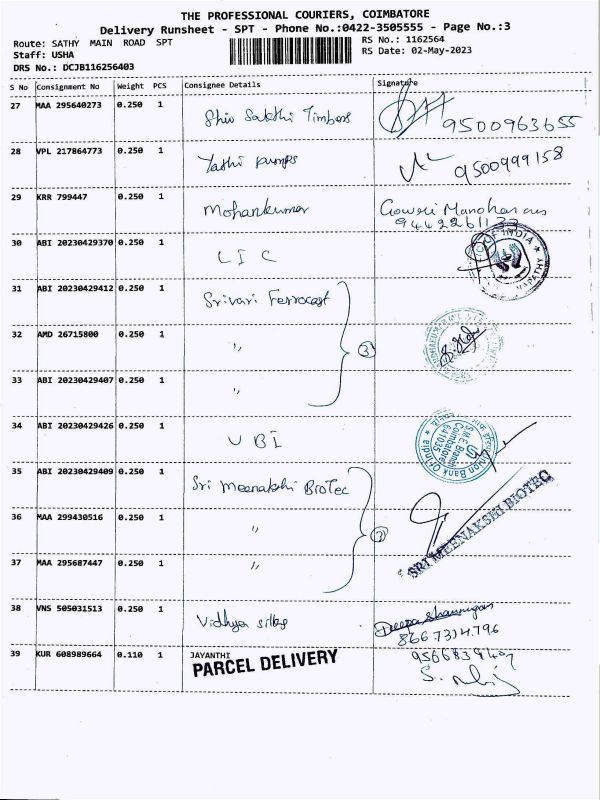 THE PROFESSIONAL COURIERS, COIMBATORE
Delivery Runsheet - SPT - Phone No.:0422-3505555 - Page No.:3
Route: SATHY MAIN ROAD SPT
RS No.: 1162564
Staff: USHA
RS Date: 02-May-2023
DRS No.: DCJB116256403
S No Consignment No Weight PCS Consignee Details Signature
27 MAA 295640273 0.250 1 Shiv Sakthi Timbers 9500963655
28 VPL 217864773 0.250 1 Yathi pumps 9500999158
29 KRR 799447 0.250 1 Mohankumar Gowri Manoharan
30 ABI 20230429370 0.250 1 LIC
31 ABI 20230429412 0.250 1 Srivari Ferrocast
32 AMD 26715800 0.250 1 "
3
33 ABI 20230429407 0.250 1 "
34 ABI 20230429426 0.250 1 UBI
Union Bank Of India
S.M.E Branch
Coimbatore
641035
35 ABI 20230429409 0.250 1 Sri Meenakshi BioTec
36 MAA 299430516 0.250 1 "
2 SRI MEENAKSHI BIOTEC
37 MAA 295687447 0.250 1 "
38 VNS 505031513 0.250 1 Vidhya silks Deepa Shanmugam
8667314796
39 KUR 608989664 0.110 1 JAYANTHI
PARCEL DELIVERY